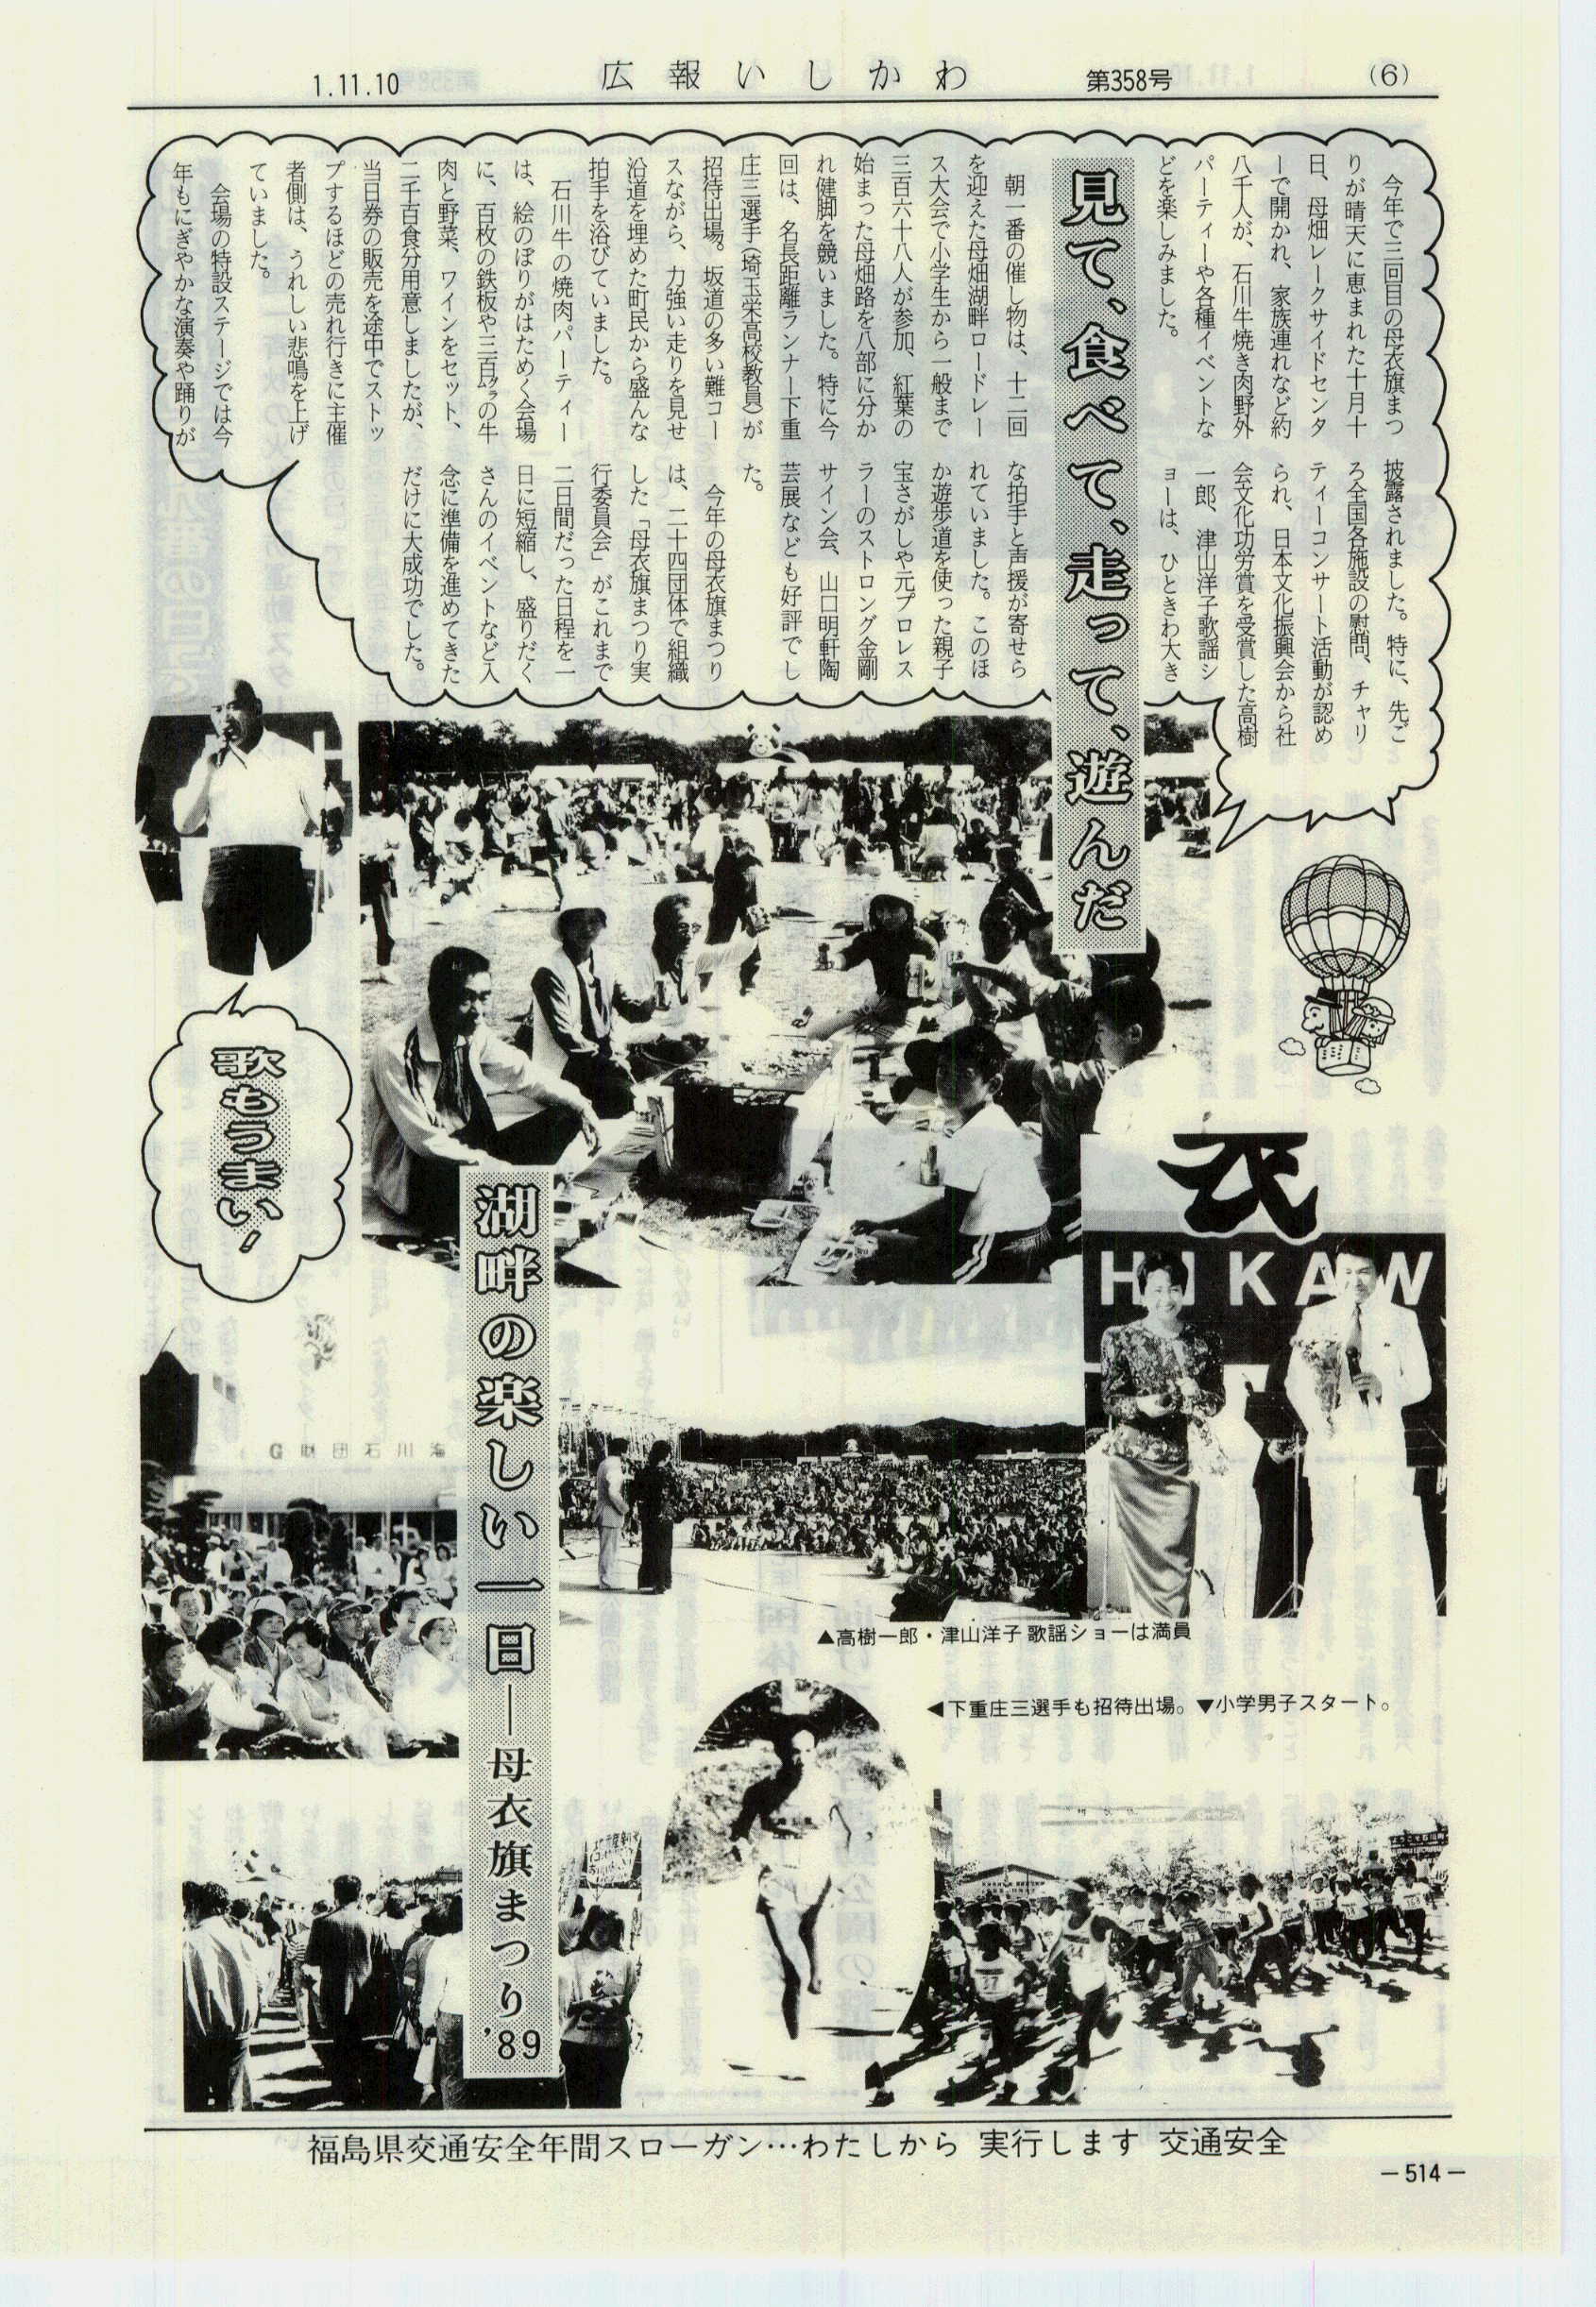 1.11.10
広報いしかわ
第358号
(6)
見て、食べて、走って、遊んだ
今年で三回目の母衣旗まつ
りが晴天に恵まれた十月十
日、母畑レークサイドセンタ
ーで開かれ、家族連れなど約
八千人が、石川牛焼き肉野外
パーティーや各種イベントな
どを楽しみました。
朝一番の催し物は、十二回
を迎えた母畑湖畔ロードレー
ス大会で小学生から一般まで
三百六十八人が参加、紅葉の
始まった母畑路を八部に分か
れ健脚を競いました。特に今
回は、名長距離ランナー下重
庄三選手(埼玉栄高校教員)が
招待出場。坂道の多い難コー
スながら、力強い走りを見せ
沿道を埋めた町民から盛んな
拍手を浴びていました。
石川牛の焼肉パーティー
は、絵のぼりがはためく会場
に、百枚の鉄板や三百㌔の牛
肉と野菜、ワインをセット、
二千百食分用意しましたが、
当日券の販売を途中でストッ
プするほどの売れ行きに主催
者側は、うれしい悲鳴を上げ
ていました。
会場の特設ステージでは今
年もにぎやかな演奏や踊りが
披露されました。特に、先ご
ろ全国各施設の慰問、チャリ
ティーコンサート活動が認め
られ、日本文化振興会から社
会文化功労賞を受賞した高樹
一郎、津山洋子歌謡シ
ョーは、ひときわ大き
な拍手と声援が寄せら
れていました。このほ
か遊歩道を使った親子
宝さがしや元プロレス
ラーのストロング金剛
サイン会、山口明軒陶
芸展なども好評でし
た。
今年の母衣旗まつり
は、二十四団体で組織
した「母衣旗まつり実
行委員会」がこれまで
二日間だった日程を一
日に短縮し、盛りだく
さんのイベントなど入
念に準備を進めてきた
だけに大成功でした。
歌もうまい!
衣
HIKAW
財団石川
湖畔の楽しい一日―母衣旗まつり'89
▲高樹一郎・津山洋子 歌謡ショーは満員
◀下重庄三選手も招待出場。▼小学男子スタート。
福島県交通安全年間スローガン…わたしから 実行します 交通安全
－514－